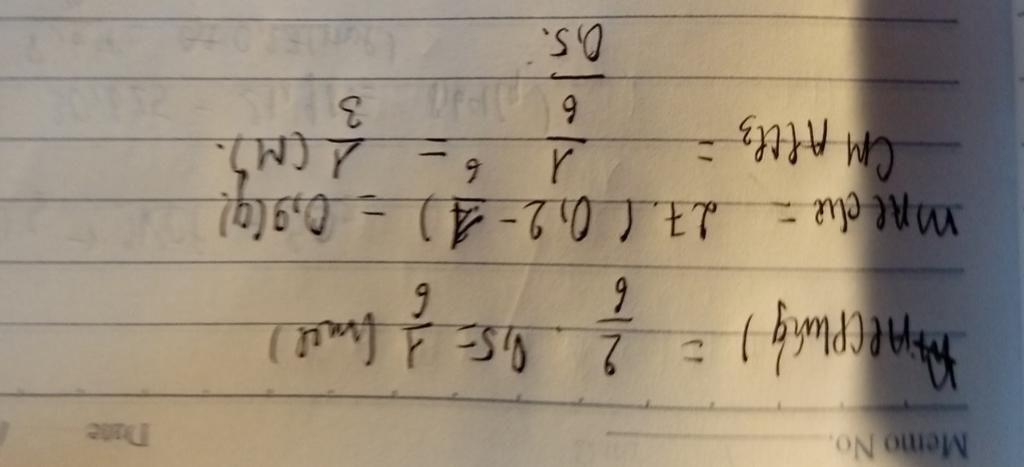 Memo No. Date
nAl(phứng) = 2/6 . 0,5 = 1/6 (mol)
mAl dư = 27. (0,2 - 1/6) = 0,9(g).
CM AlCl3 = 1/6 / 0,5. = 1/3 (M).